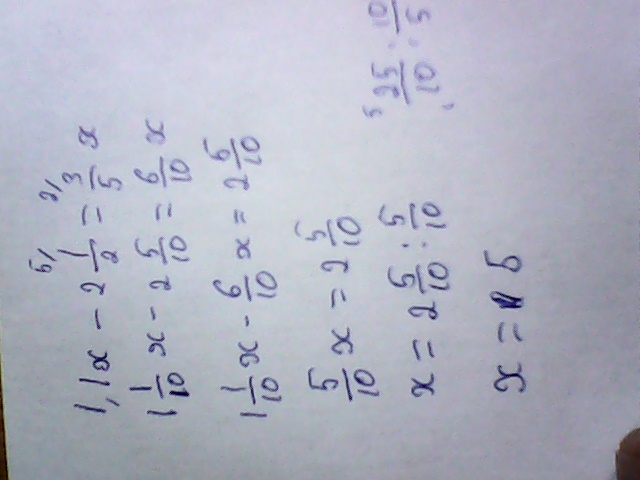 1,1x - 2 1/2 = 3/5 x
1 1/10 x - 2 5/10 = 6/10 x
1 1/10 x - 6/10 x = 2 5/10
5/10 x = 2 5/10
x = 2 5/10 : 5/10
x = 5
25/10 : 10/5